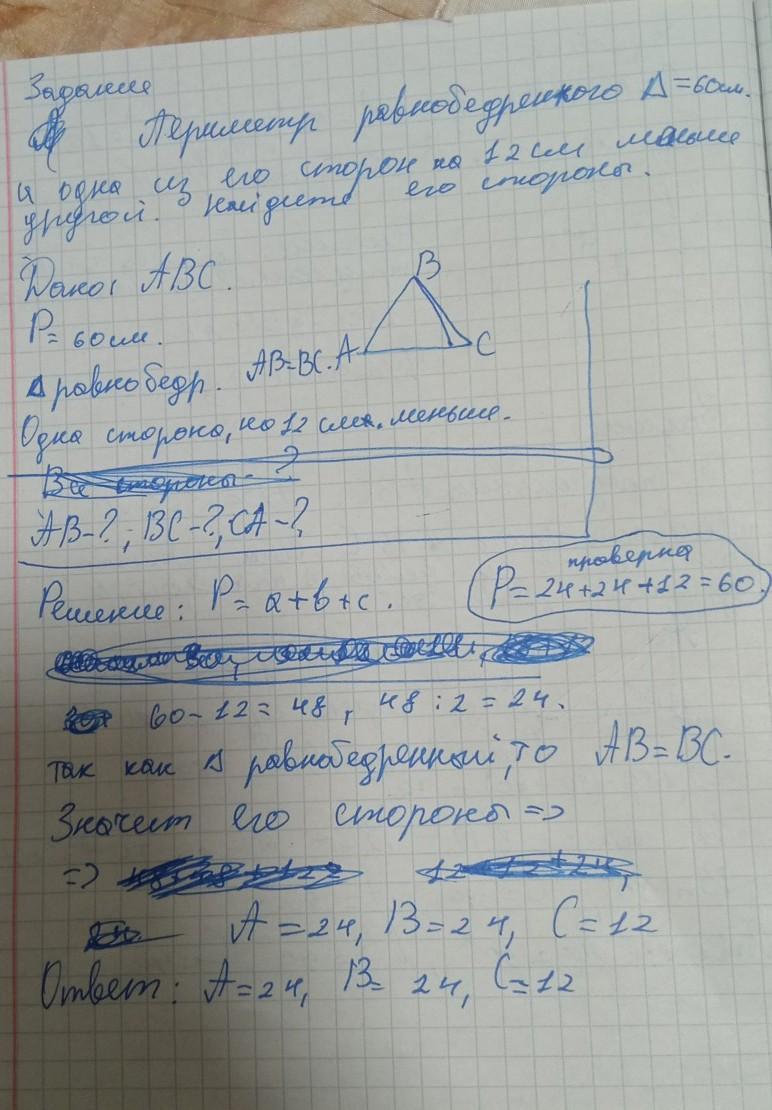 Задание
Периметр равнобедренного Δ = 60 см.
и одна из его сторон на 12 см меньше
другой. Найдите его стороны.
Дано: ABC.
B
P = 60 см.
Δ равнобедр. AB=BC. A C
Одна сторона, на 12 см. меньше.
Все стороны - ?
AB-?, BC-?, CA-?
проверка
Решение: P = a+b+c. P = 24+24+12=60.
60-12=48, 48:2=24.
так как Δ равнобедренный, то AB=BC.
Значит его стороны =>
=>
A=24, B=24, C=12
Ответ: A=24, B= 24, C=12